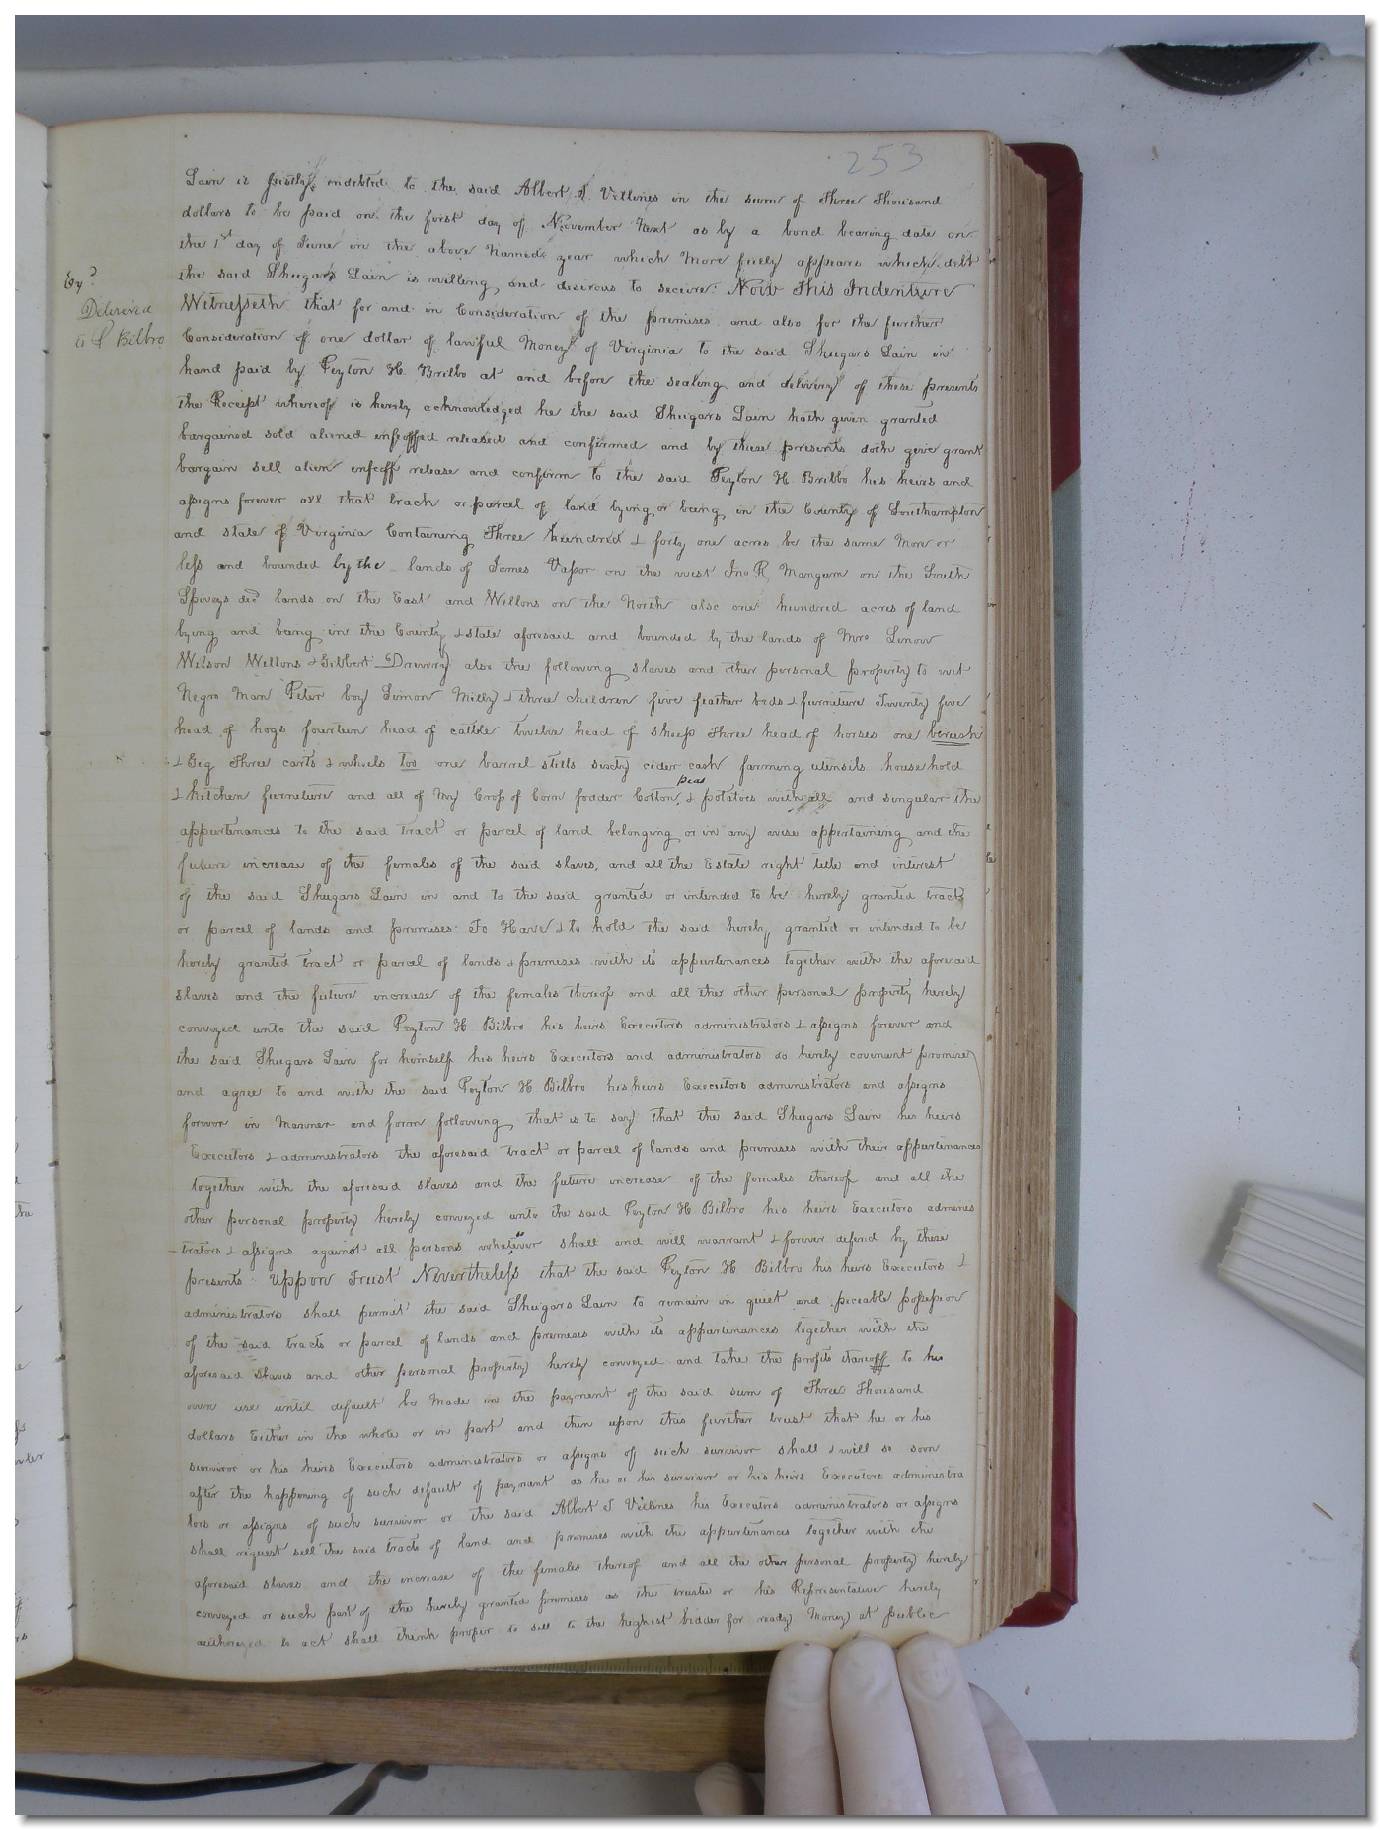 253
Lain is justly indebted to the said Albert S. Vellines in the sum of Three Thousand
dollars to be paid on the first day of November Next as by a bond bearing date on
the 1st day of June in the above Named year which More fuly appears which debt
the said Shugars Lain is willing and desirous to secure. Now This Indenture
Witnesseth that for and in Consideration of the premises and also for the further
Consideration of one dollar of lawful Money of Virginia to the said Shugars Lain in
hand paid by Peyton H. Brilbo at and before the sealing and delivery of these presents
the Receipt whereof is hereby acknowledged he the said Shugars Lain hath given granted
bargained sold aliened enfeoffed released and confirmed and by these presents doth give grant
bargain sell alien enfeoff release and confirm to the said Peyton H. Brilbo his heirs and
assigns forever all that trach or parcel of land lying or being in the County of Southampton
and state of Virginia Containing Three hundred & forty one acres be the same More or
less and bounded by the lands of James Vasor on the west Jno R. Mangum on the South
Spiveys decd lands on the East and Willons on the North also one hundred acres of land
lying and being in the County & state aforesaid and bounded by the lands of Mrs Lenow
Wilson Wellons & Gilbert Drewry also the following slaves and other personal property to wit
Negro Man Peter boy Simon Milly & three children five feather beds & furniture Twenty five
head of hogs fourteen head of cattle twelve head of sheep Three head of horses one
& Gig Three carts & wheels too one barrel stills sixty cider cask farming utensils household
& kitchen furneture and all of My Crop of Corn fodder Cotton, peas & potatoes with all and singular the
appurtinances to the said Tract or parcel of land belonging or in any wise appertaining and the
future increase of the females of the said slaves, and all the Estate right title and interest
of the said Shugars Lain in and to the said granted or intended to be hereby granted tract
or parcel of lands and premises. To Have & to hold the said hereby granted or intended to be
hereby granted tract or parcel of lands & premises with its appurtinances together with the aforesaid
slaves and the future increase of the females thereof and all the other personal property hereby
conveyed unto the said Peyton H. Bilbro his heirs Executors administrators & assigns forever and
the said Shugars Lain for himself his heirs Executors and administrators do hereby covenant promise
and agree to and with the said Peyton H Bilbro his heirs Executors administrators and assigns
forever in Manner and form following that is to say that the said Shugars Lain his heirs
Executors & administrators the aforesaid tract or parcel of lands and premises with their appurtinances
together with the aforesaid slaves and the future increase of the females thereof and all the
other personal property hereby conveyed unto the said Peyton H Bilbro his heirs Executors adminis
trators & assigns against all persons whatever shall and will warrant & forever defend by these
presents. Uppon Trust Nevertheless that the said Peyton H. Bilbro his heirs Executors &
administrators shall permit the said Shugars Lain to remain in quiet and peceable possession
of the said tracts or parcel of lands and premises with its appurtinances together with the
aforesaid slaves and other personal property hereby conveyed and take the profits thereoff to his
own use until default be Made in the payment of the said sum of Three Thousand
dollars Either in the whole or in part and then upon this further trust that he or his
survivor or his heirs Executors administrators or assigns of such survivor shall & will so soon
after the happening of such default of payment as he or his survivor or his heirs Executors administra
tors or assigns of such survivor or the said Albert S Vellines his Executors administrators or assigns
shall request sell the said tracts of land and premises with the appurtenances together with the
aforesaid slaves and the increase of the females thereof and all the other personal property hereby
conveyed or such part of the hereby granted premises as the trustee or his Representative hereby
authorized to act shall think proper to sell to the highest bidder for ready Money at public
Exd
Delivered
to P Bilbro